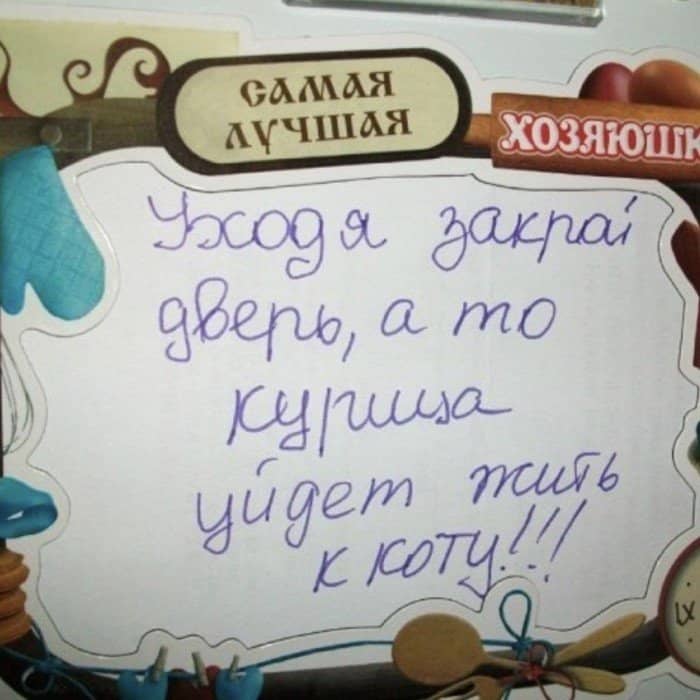 самая
лучшая
хозяюшк
Уходя закрай
дверь, а то
курица
уйдет жить
к коту!!!
IX